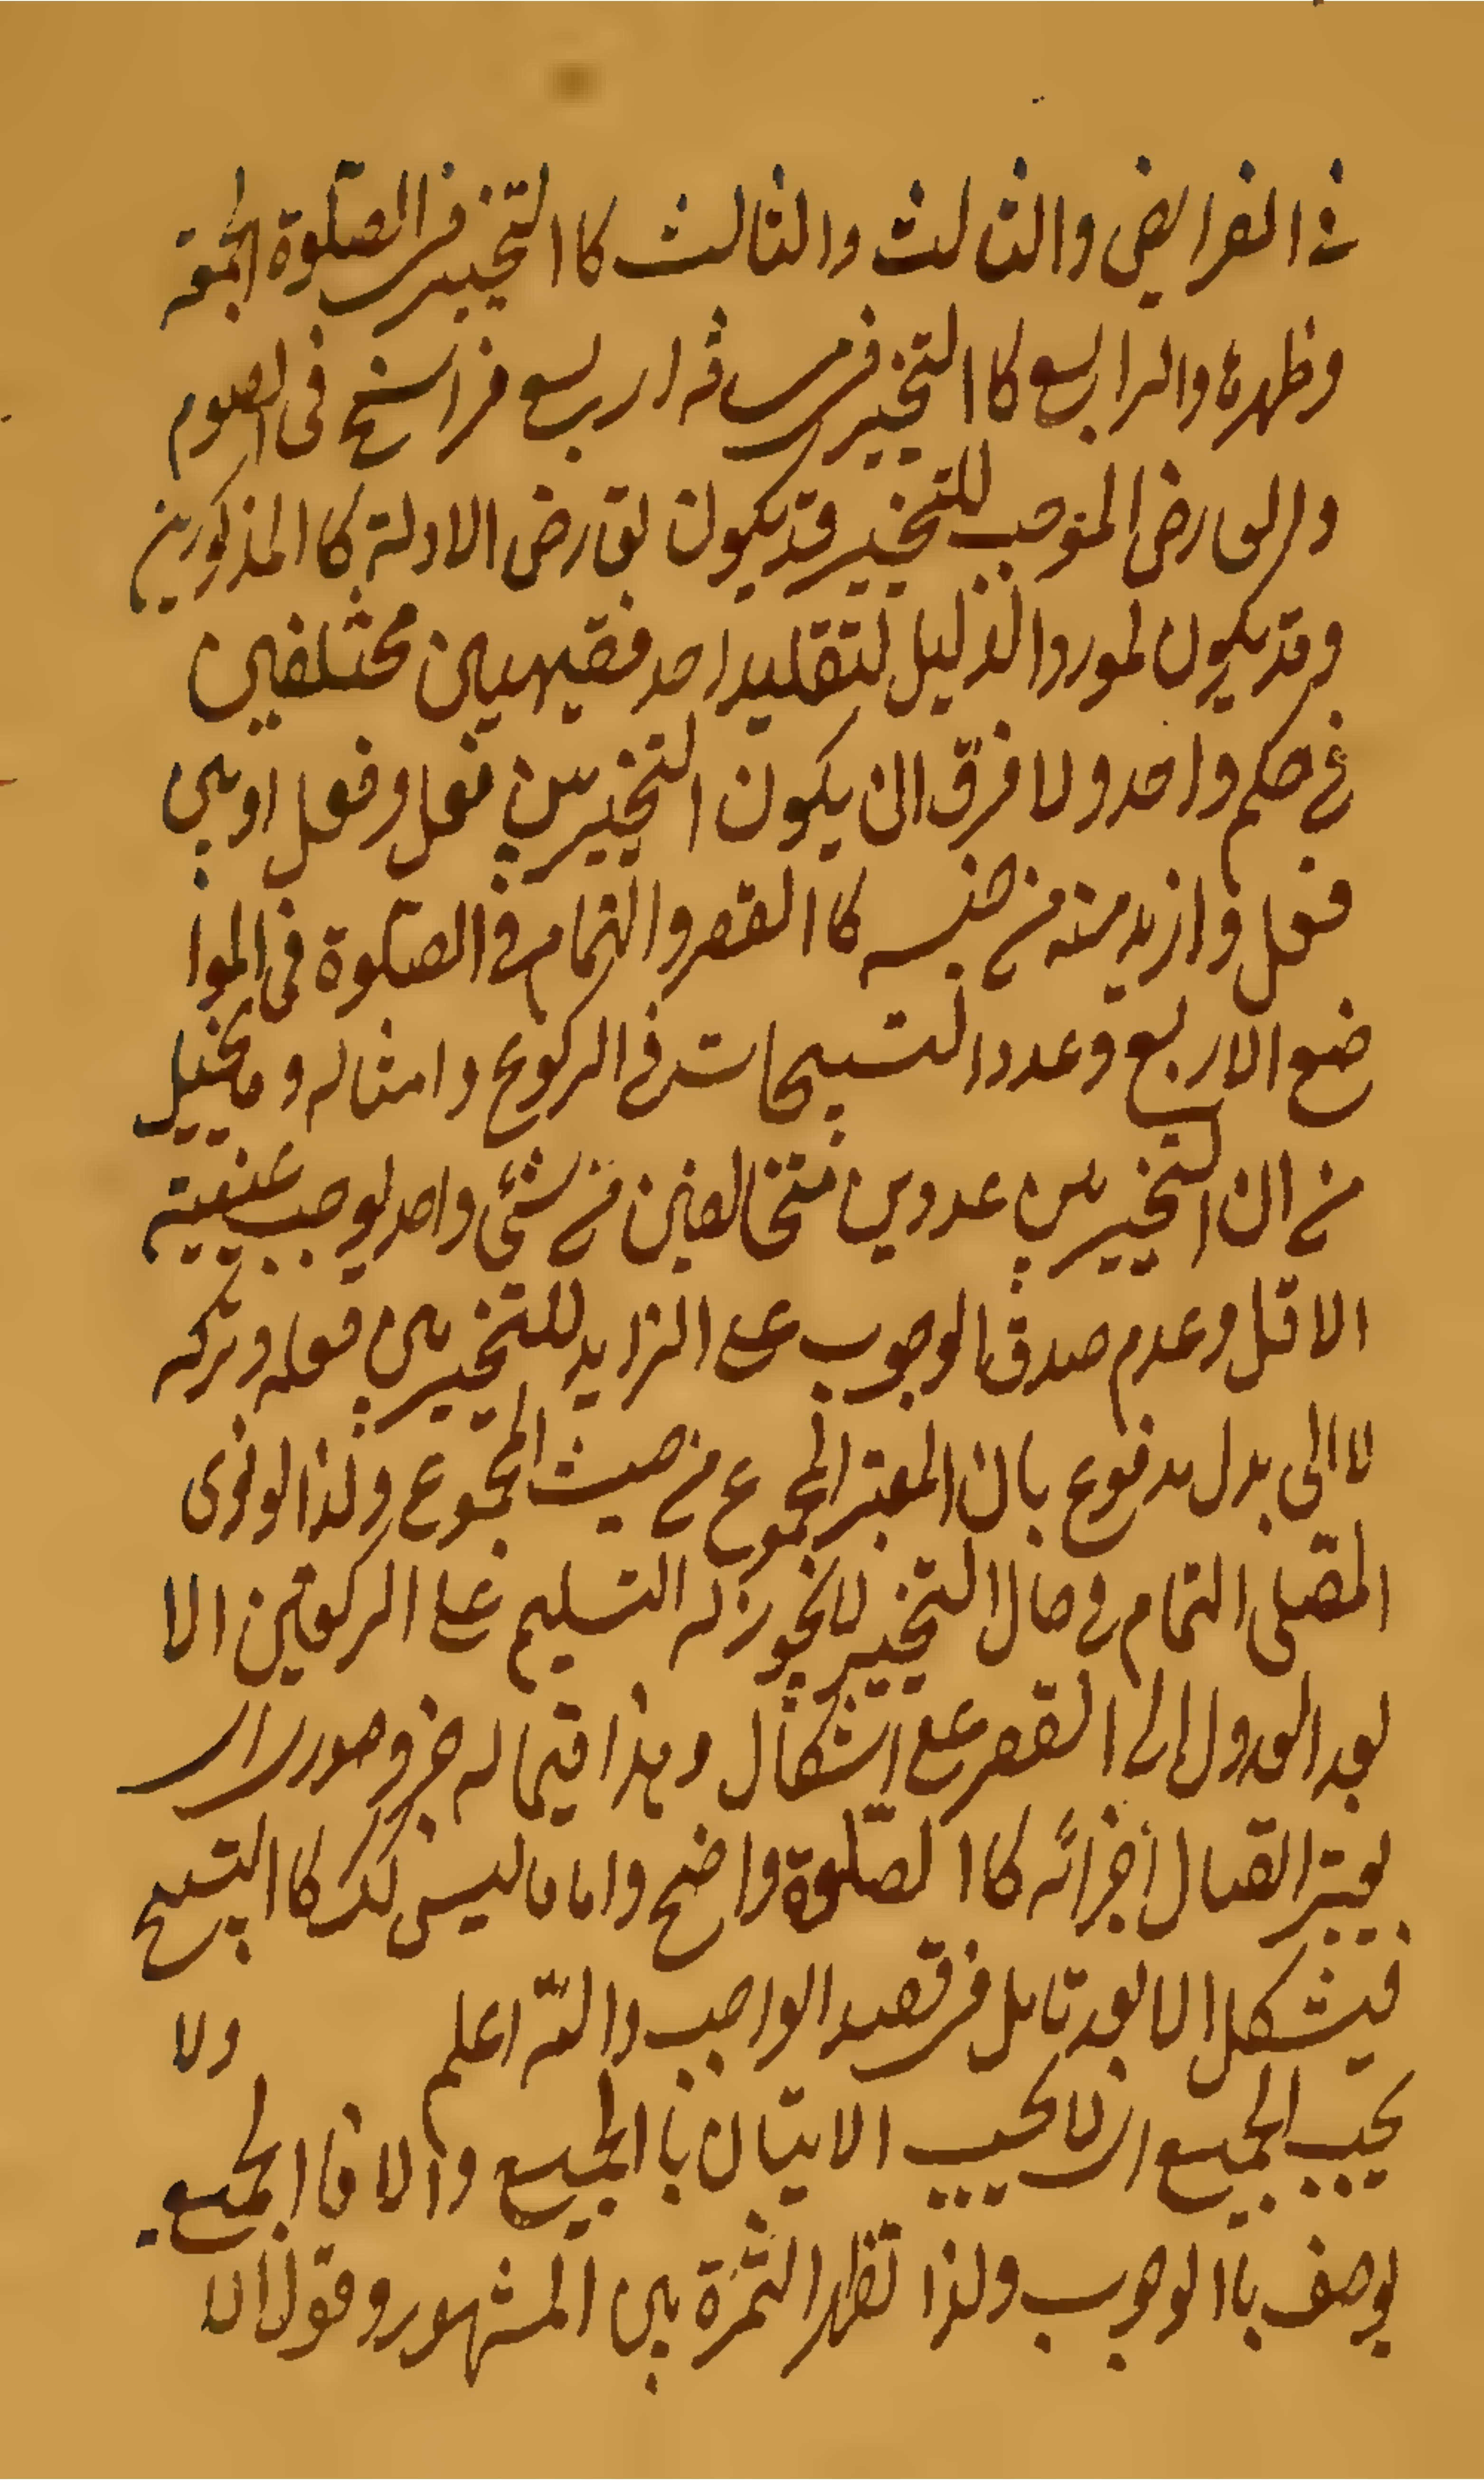 في الفرايض والثالث والثالث كاالتخيير في الصلوة الجمعة
وظهرها والرابع كاالتخيير في مسافة اربع فراسخ في الصوم
والتعارض الموجب للتخيير قد يكون لتعارض الادلة كاالمذكورين
وقد يكون لمورد الدليل لتقليد احد فقيهين مختلفين
في حكم واحد ولا فرق ان يكون التخيير بين فعل وفعل او بين
فعل وازيد منه من جنسه كاالقصر والتمام في الصلوة في الموا
ضع الاربع وعدد التسبيحات في الركوع وامثاله وما يخيل
من ان التخيير بين عددين متخالفين من شئ واحد يوجب عينية
الاقل وعدم صدق الوجوب على الزايد للتخيير بين فعله وتركه
لا الى بدل مدفوع بان المعتبر المجموع من حيث المجموع ولذا لو نوى
المصلى التمام في حال التخيير لا يجوز له التسليم على الركعتين الا
بعد العدول الى القصر على اشكال وهذا فيما له جزء وصوري
يعتبر اتصال أجزائه كا الصلوة واضح واما ما ليس كذلك كا التسبيح
فيشكل الا بعد تامل في قصد الواجب والله اعلم ولا
يجب الجميع اى لا يجب الاتيان باالجميع والا فا الجميع
يوصف باالوجوب ولذا تظهر الثمرة بين المشهور وقول الا